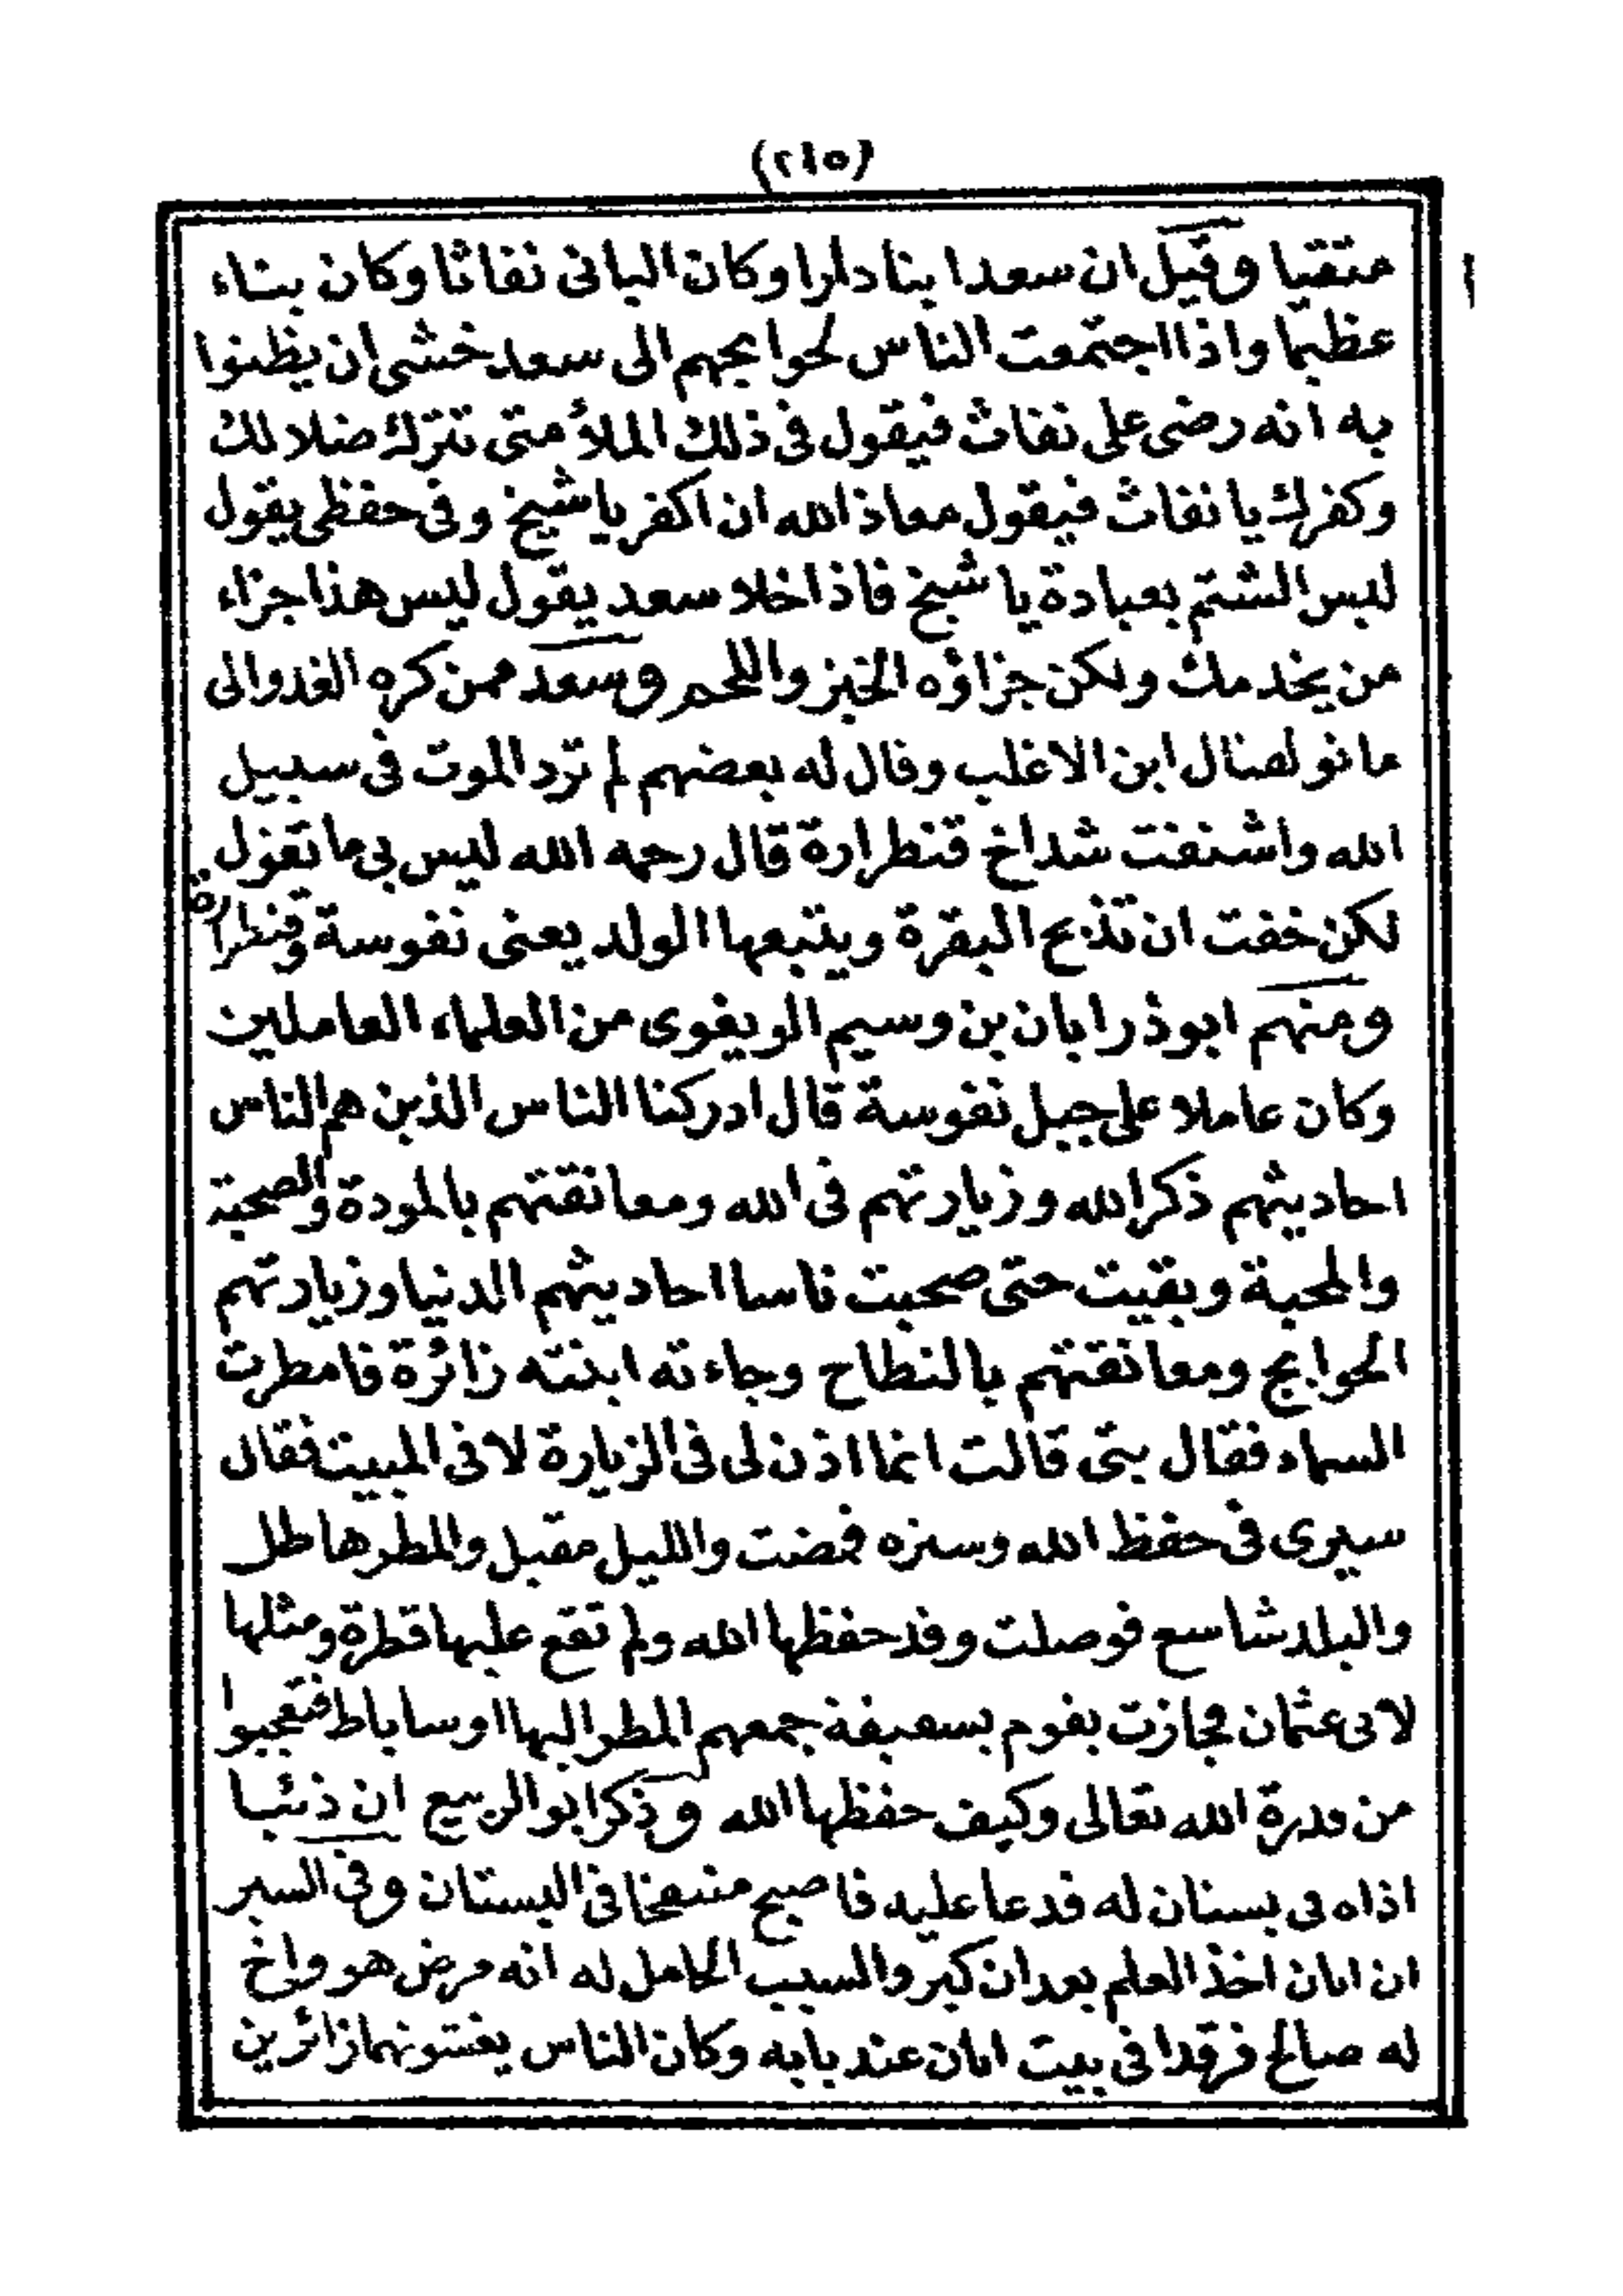 (٢١٥)
متقيا وقيل ان سعدا بنا دارا وكان البانى نفاثا وكان بناء
عظيما واذا اجتمعت الناس لحوايجهم الى سعد خشى ان يظنوا
به انه رضى على نفاث فيقول فى ذلك الملأ متى تترك ضلالك
وكفرك يا نفاث فيقول معاذ الله ان اكفر يا شيخ وفى حفظى يقول
ليس الشتم بعبادة يا شيخ فاذا خلا سعد يقول ليس هذا جزاء
من يخدمك ولكن جزاؤه الخبز واللحم وسعد ممن كره الغدو الى
مانو لقتال ابن الاغلب وقال له بعضهم لم ترد الموت فى سبيل
الله واشتقت شداخ قنطرارة قال رحمه الله ليس بى ما تقول
لكن خفت ان تذبح البقرة ويتبعها الولد يعنى نفوسة وقنطرارة
ومنهم ابوذر ابان بن وسيم الويغوى من العلماء العاملين
وكان عاملا على جبل نفوسة قال ادركنا الناس الذين هم الناس
احاديثهم ذكر الله وزيارتهم فى الله ومعانقتهم بالمودة والصحبة
والمحبة وبقيت حتى صحبت ناسا احاديثهم الدنيا وزيارتهم
الحوايج ومعانقتهم بالنطاح وجاءته ابنته زائرة فامطرت
السماء فقال بتى قالت انما اذن لى فى الزيارة لا فى المبيت فقال
سيرى فى حفظ الله وستره فمضت والليل مقبل والمطر هاطل
والبلد شاسع فوصلت وقد حفظها الله ولم تقع عليها قطرة ومثلها
لابى عثمان فجازت بقوم بسقيفة جمعهم المطر اليها او ساباط فتعجبوا
من قدرة الله تعالى وكيف حفظها الله وذكر ابو الربيع ان ذئبا
اذاه فى بستان له فدعا عليه فاصبح منتفخا فى البستان وفى السير
ان ابان اخذ العلم بعد ان كبر والسبب الحامل له انه مرض هو واخ
له صالح فرقدا فى بيت ابان عند بابه وكان الناس يغشونهما زائرين